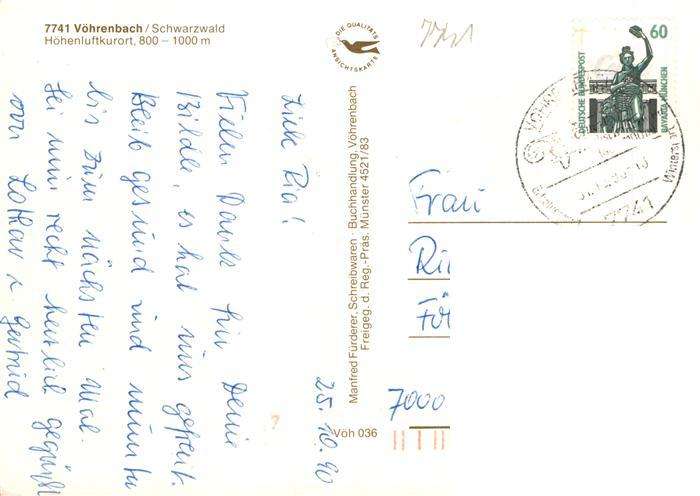 7741 Vöhrenbach / Schwarzwald
Höhenluftkurort, 800 – 1000 m
DIE QUALITÄTS
ANSICHTSKARTE
7741
60
DEUTSCHE BUNDESPOST
BAVARIA MÜNCHEN
7741
25.10.90
Liebe Ria!
Vielen Dank für Deine
Bilder, es hat uns gefreut.
Bleib gesund und munter
bis zum nächsten Mal.
Sei nun recht herzlich gegrüßt
von Lothar u Gertrud
Manfred Fürderer, Schreibwaren · Buchhandlung, Vöhrenbach
Freigeg. d. Reg.-Präs. Münster 4521/83
Vöh 036
Frau
7000